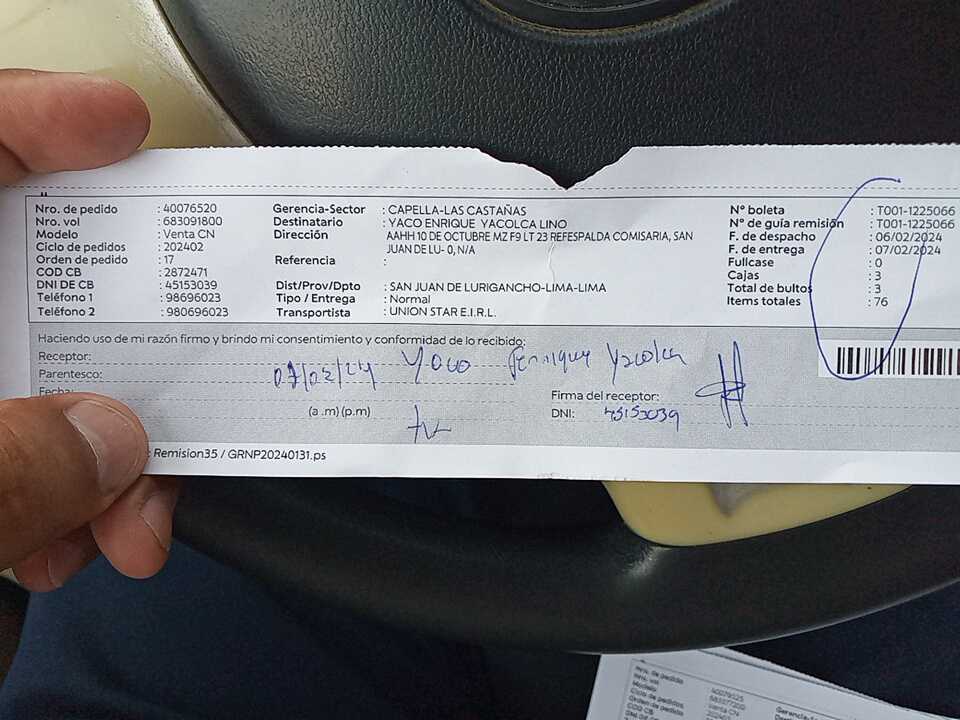 Nro. de pedido : 40076520
Nro. vol : 683091800
Modelo : Venta CN
Ciclo de pedidos : 202402
Orden de pedido : 17
COD CB : 2872471
DNI DE CB : 45153039
Teléfono 1 : 98696023
Teléfono 2 : 980696023
Gerencia-Sector : CAPELLA-LAS CASTAÑAS
Destinatario : YACO ENRIQUE YACOLCA LINO
Dirección : AAHH 10 DE OCTUBRE MZ F9 LT 23 REFESPALDA COMISARIA, SAN
JUAN DE LU- 0, N/A
Referencia :
Dist/Prov/Dpto : SAN JUAN DE LURIGANCHO-LIMA-LIMA
Tipo / Entrega : Normal
Transportista : UNION STAR E.I.R.L.
N° boleta : T001-1225066
N° de guía remisión : T001-1225066
F. de despacho : 06/02/2024
F. de entrega : 07/02/2024
Fullcase : 0
Cajas : 3
Total de bultos : 3
Items totales : 76
Haciendo uso de mi razón firmo y brindo mi consentimiento y conformidad de lo recibido:
Receptor:
Parentesco:
07/02/24 Yaco Enrique Yacolca
Fecha:
(a .m) (p.m)
Firma del receptor:
DNI: 45153039
: Remision35 / GRNP20240131.ps
Nro. de pedido : 40079525
Nro. vol
Modelo : Venta CN
Ciclo de pedidos : 202402
Orden de pedido
COD CB